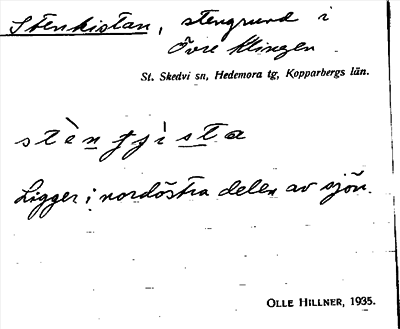 Stenkistan, stengrund i
Övre Klingen
St. Skedvi sn, Hedemora tg, Kopparbergs län.
stènʃʃìsta
Ligger i nordöstra delen av sjön.
OLLE HILLNER, 1935.